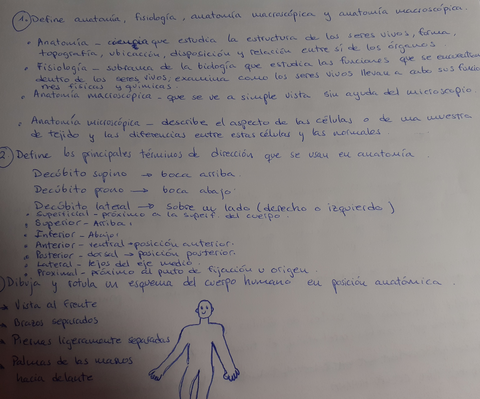 1. Define anatomía, fisiología, anatomía macroscópica y anatomía macroscópica.
• Anatomía - ciencia que estudia la estructura de los seres vivos, forma,
topografía, ubicación, disposición y relación entre sí de los órganos
• Fisiología - subrama de la biología que estudia las funciones que se encuentran
dentro de los seres vivos, examina como los seres vivos llevan a cabo sus funcio
nes físicas y químicas.
• Anatomía macroscópica - que se ve a simple vista sin ayuda del microscopio.
• Anatomía microscópica - describe el aspecto de las células o de una muestra
de tejido y las diferencias entre estas células y las normales
2 Define los principales términos de dirección que se usan en anatomía
Decúbito supino → boca arriba.
Decúbito prono → boca abajo.
Decúbito lateral → sobre un lado (derecho o izquierdo)
• Superficial - próximo a la superf. del cuerpo.
• Superior - Arriba.
• Inferior - Abajo.
• Anterior - ventral → posición anterior.
• Posterior - dorsal → posición posterior.
• Lateral - lejos del eje medio.
• Proximal - próximo al punto de fijación u origen.
) Dibuja y rotula un esquema del cuerpo humano en posición anatómica.
→ Vista al frente
Brazos separados
Piernas ligeramente separadas
Palmas de las manos
hacia delante